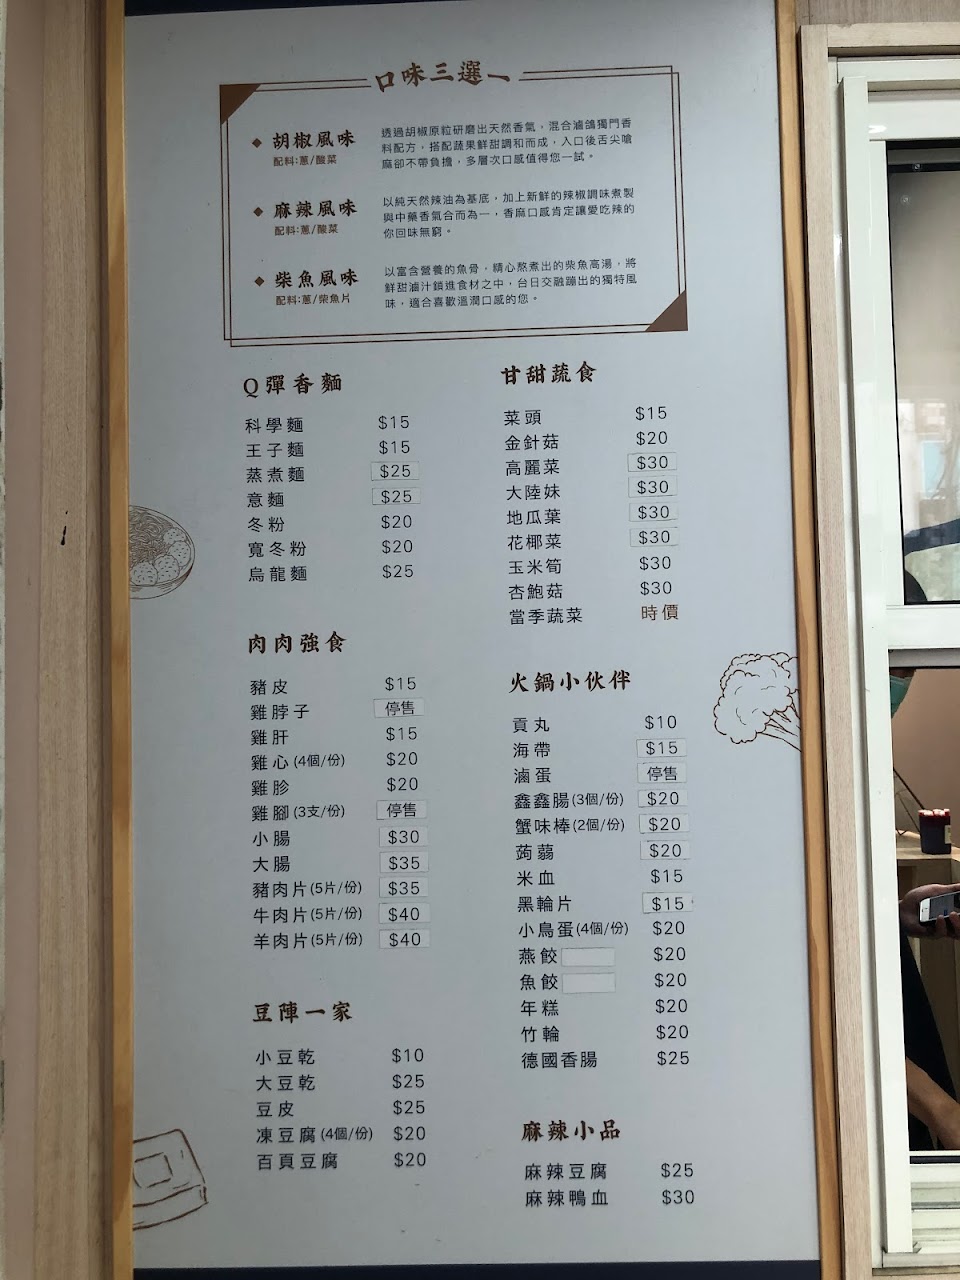 口味三選一
◆ 胡椒風味
配料:蔥/酸菜
透過胡椒原粒研磨出天然香氣，混合滷鴿獨門香
料配方，搭配蔬果鮮甜調和而成，入口後舌尖嗆
麻卻不帶負擔，多層次口感值得您一試。
◆ 麻辣風味
配料:蔥/酸菜
以純天然辣油為基底，加上新鮮的辣椒調味煮製
與中藥香氣合而為一，香麻口感肯定讓愛吃辣的
你回味無窮。
◆ 柴魚風味
配料:蔥/柴魚片
以富含營養的魚骨，精心熬煮出的柴魚高湯，將
鮮甜滷汁鎖進食材之中，台日交融蹦出的獨特風
味，適合喜歡溫潤口感的您。
Q彈香麵
科學麵 $15
王子麵 $15
蒸煮麵 $25
意麵 $25
冬粉 $20
寬冬粉 $20
烏龍麵 $25
肉肉強食
豬皮 $15
雞脖子 停售
雞肝 $15
雞心(4個/份) $20
雞胗 $20
雞腳(3支/份) 停售
小腸 $30
大腸 $35
豬肉片(5片/份) $35
牛肉片(5片/份) $40
羊肉片(5片/份) $40
豆陣一家
小豆乾 $10
大豆乾 $25
豆皮 $25
凍豆腐(4個/份) $20
百頁豆腐 $20
甘甜蔬食
菜頭 $15
金針菇 $20
高麗菜 $30
大陸妹 $30
地瓜葉 $30
花椰菜 $30
玉米筍 $30
杏鮑菇 $30
當季蔬菜 時價
火鍋小伙伴
貢丸 $10
海帶 $15
滷蛋 停售
鑫鑫腸(3個/份) $20
蟹味棒(2個/份) $20
蒟蒻 $20
米血 $15
黑輪片 $15
小鳥蛋(4個/份) $20
燕餃 $20
魚餃 $20
年糕 $20
竹輪 $20
德國香腸 $25
麻辣小品
麻辣豆腐 $25
麻辣鴨血 $30